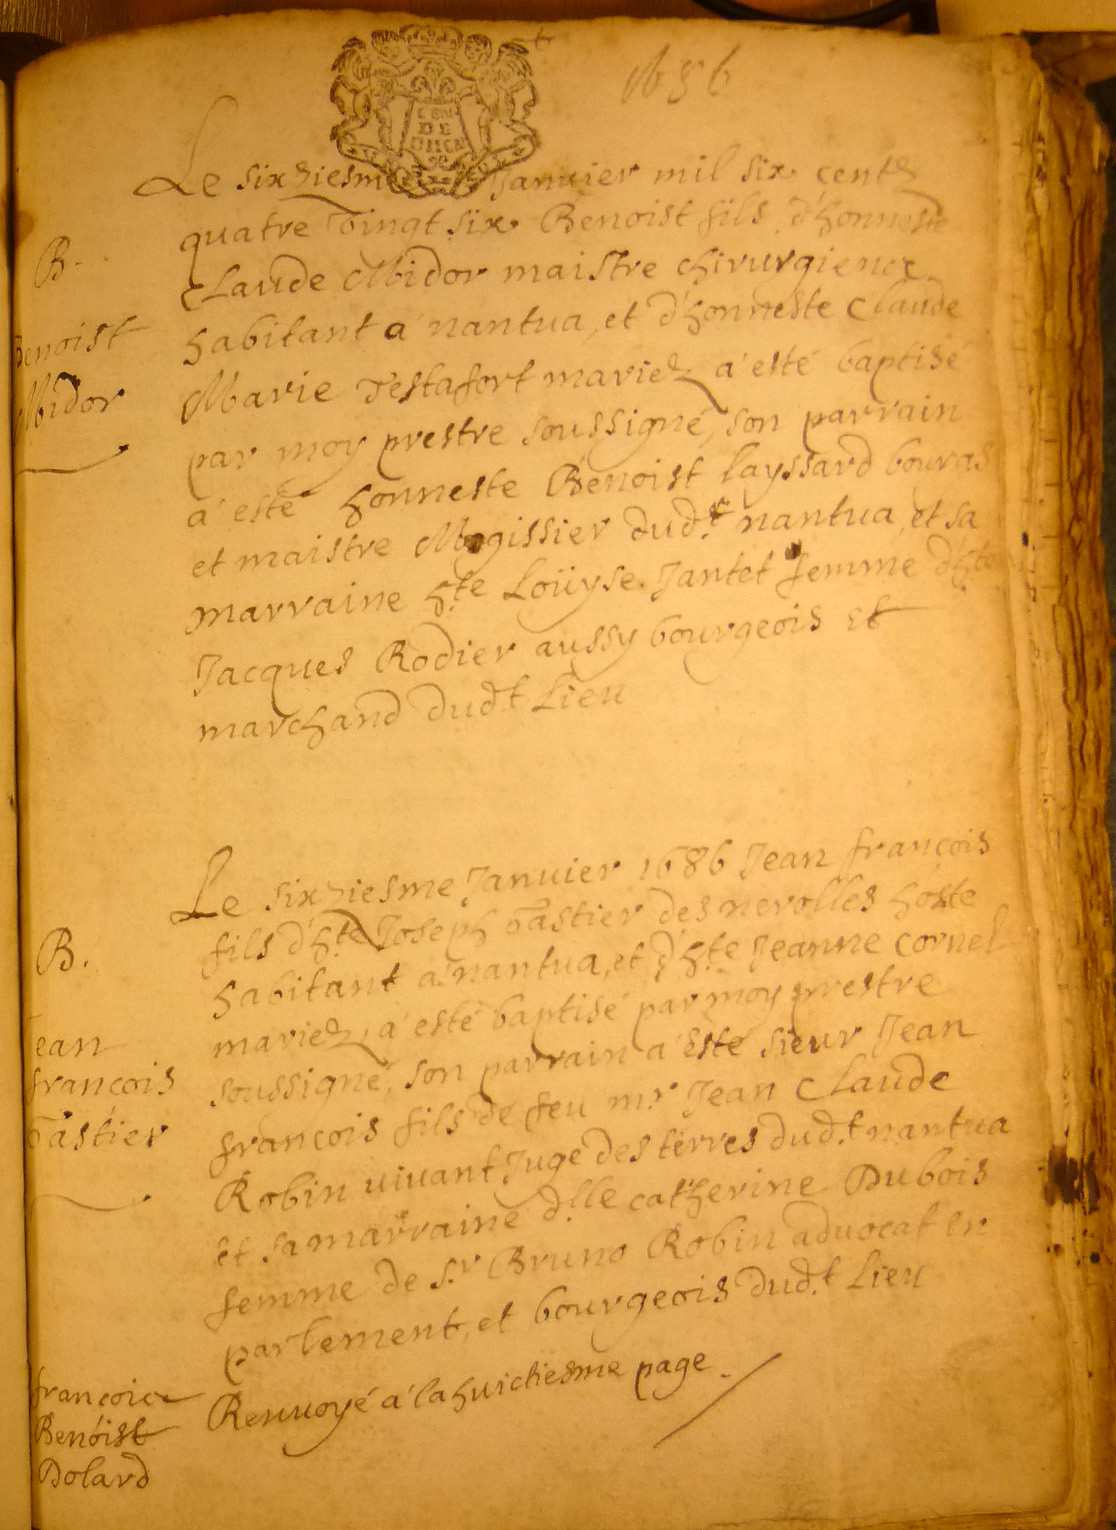 1686
GEN
DE
Le sixziesme Januier mil six centz
quatre vingt six Benoist fils d'honneste
Claude Midor maistre chirurgien
habitant a nantua, et d'honneste Claude
Marie Testafort mariez a' esté baptisé
par moy prestre soussigné, son parrain
a' esté honneste Benoist layssard
et maistre Megissier dud.t nantua, et sa
marraine h.te Loüyse Jantet femme d'h.te
Jacques Rodier aussy bourgeois et
marchand dud.t Lieu
B.
Benoist
Midor
Le sixziesme Januier 1686 Jean françois
fils d'h.te Joseph Tastier des nerolles hoste
habitant a' nantua, et d'h.te Jeanne cornel
mariez, a' esté baptisé par moy prestre
soussigné, son parrain a' esté sieur Jean
françois fils de feu m.r Jean Claude
Robin viuant Juge des terres dud.t nantua
et sa marraine d.lle catherine Dubois
femme de s.r Bruno Robin aduocat en
parlement, et bourgeois dud.t Lieu
B.
Jean
françois
Tastier
Renuoyé a' la huictiesme page
françois
Benoist
Dolard